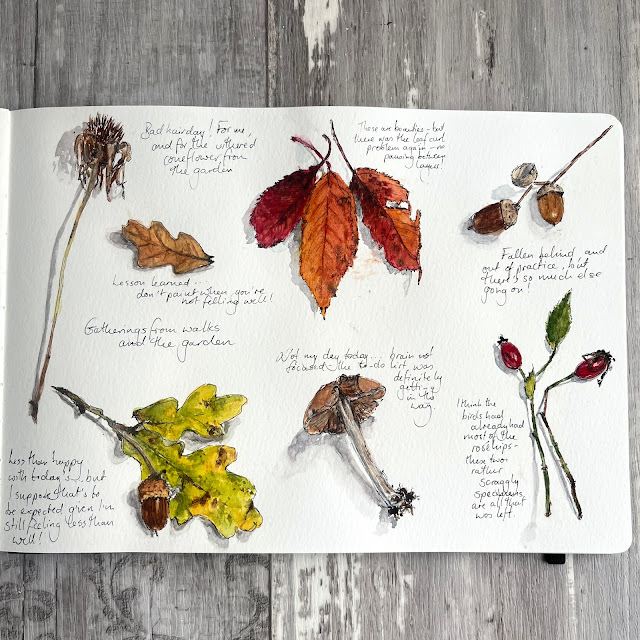 Bad hairday! For me,
and for the withered
coneflower from
the garden
These are beauties - but
there was the leaf curl
problem again - no
pausing between
layers!
Fallen behind and
out of practice, but
there's so much else
going on!
Lesson learned -
don't paint when you're
not feeling well!
Gatherings from walks
and the garden
Not my day today... brain not
focused & the to-do list was
definitely
getting
in the
way.
I think the
birds had
already had
most of the
rosehips -
these two
rather
scraggly
specimens
are all that
was left.
Less than happy
with today's... but
I suppose that's to
be expected given I'm
still feeling less than
well!